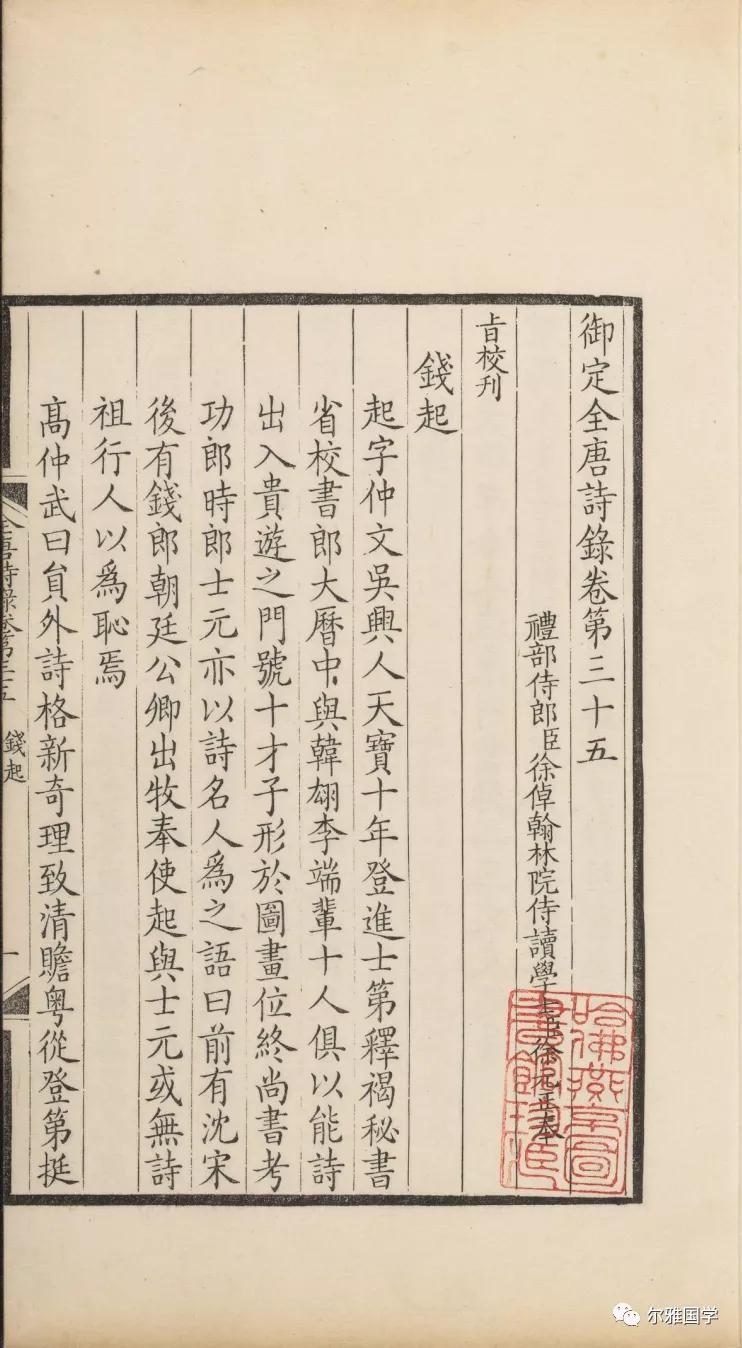 御定全唐詩錄卷第三十五
禮部侍郎臣徐倬翰林院侍讀學士臣徐元正奉
旨校刊
錢起
起字仲文吳興人天寶十年登進士第釋褐秘書
省校書郎大曆中與韓翃李端輩十人俱以能詩
出入貴遊之門號十才子形於圖畫位終尚書考
功郎時郎士元亦以詩名人爲之語曰前有沈宋
後有錢郎朝廷公卿出牧奉使起與士元或無詩
祖行人以爲恥焉
高仲武曰貟外詩格新奇理致清贍粵從登第挺
全唐詩錄卷第三十五
錢起
一
哈佛燕京圖
書館珍藏
尔雅国学